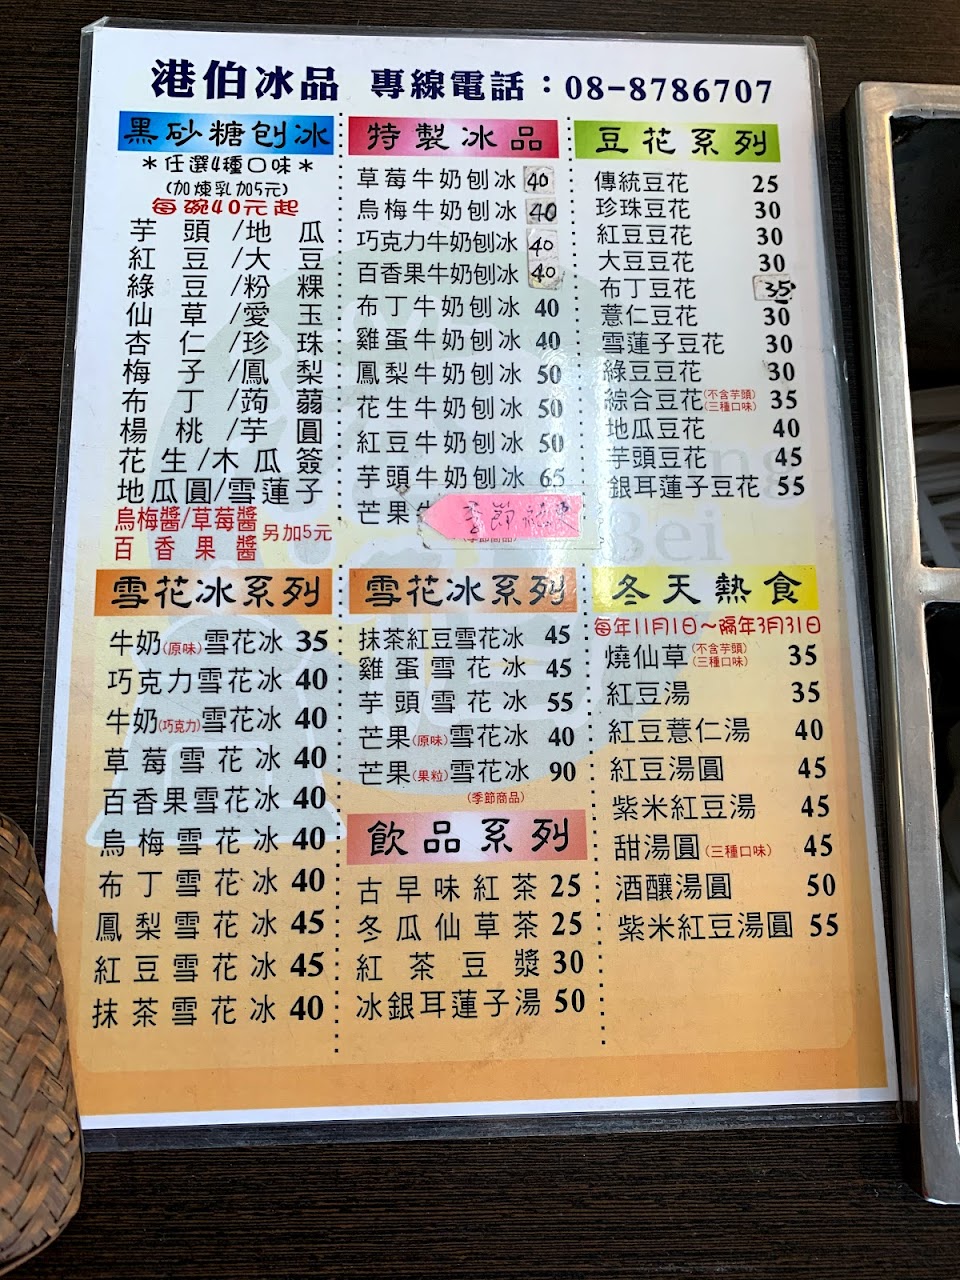 港伯冰品 專線電話：08-8786707
黑砂糖刨冰
＊任選4種口味＊
(加煉乳加5元)
每碗40元起
芋頭/地瓜
紅豆/大豆
綠豆/粉粿
仙草/愛玉
杏仁/珍珠
梅子/鳳梨
布丁/蒟蒻
楊桃/芋圓
花生/木瓜簽
地瓜圓/雪蓮子
烏梅醬/草莓醬
百香果醬 另加5元
特製冰品
草莓牛奶刨冰 40
烏梅牛奶刨冰 40
巧克力牛奶刨冰 40
百香果牛奶刨冰 40
布丁牛奶刨冰 40
雞蛋牛奶刨冰 40
鳳梨牛奶刨冰 50
花生牛奶刨冰 50
紅豆牛奶刨冰 50
芋頭牛奶刨冰 65
芒果牛
季節
(季節商品)
豆花系列
傳統豆花 25
珍珠豆花 30
紅豆豆花 30
大豆豆花 30
布丁豆花 35
薏仁豆花 30
雪蓮子豆花 30
綠豆豆花 30
綜合豆花(不含芋頭)(三種口味) 35
地瓜豆花 40
芋頭豆花 45
銀耳蓮子豆花 55
Bei
雪花冰系列
牛奶(原味)雪花冰 35
巧克力雪花冰 40
牛奶(巧克力)雪花冰 40
草莓雪花冰 40
百香果雪花冰 40
烏梅雪花冰 40
布丁雪花冰 40
鳳梨雪花冰 45
紅豆雪花冰 45
抹茶雪花冰 40
雪花冰系列
抹茶紅豆雪花冰 45
雞蛋雪花冰 45
芋頭雪花冰 55
芒果(原味)雪花冰 40
芒果(果粒)雪花冰 90
(季節商品)
飲品系列
古早味紅茶 25
冬瓜仙草茶 25
紅茶豆漿 30
冰銀耳蓮子湯 50
冬天熱食
每年11月1日～隔年3月31日
燒仙草(不含芋頭)(三種口味) 35
紅豆湯 35
紅豆薏仁湯 40
紅豆湯圓 45
紫米紅豆湯 45
甜湯圓(三種口味) 45
酒釀湯圓 50
紫米紅豆湯圓 55